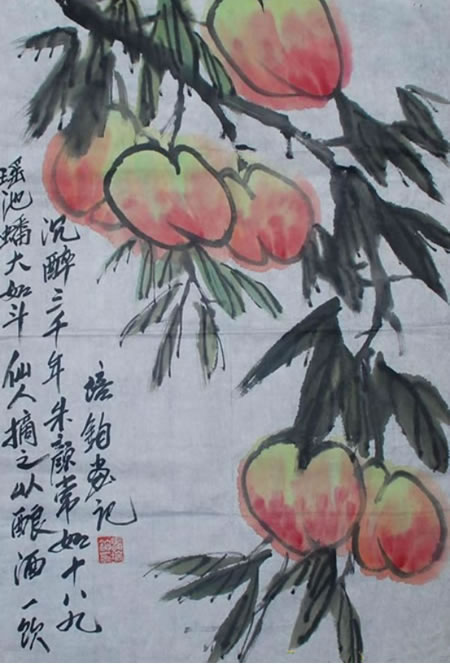 瑶池蟠大如斗仙人摘之以酿酒一饮
沉醉三千年朱颜常如十八九
培钧画记